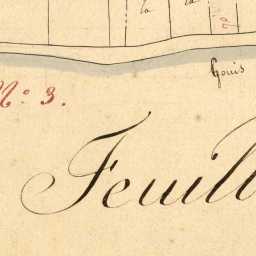 la
la
Gouis
N.o 3.
Feuill